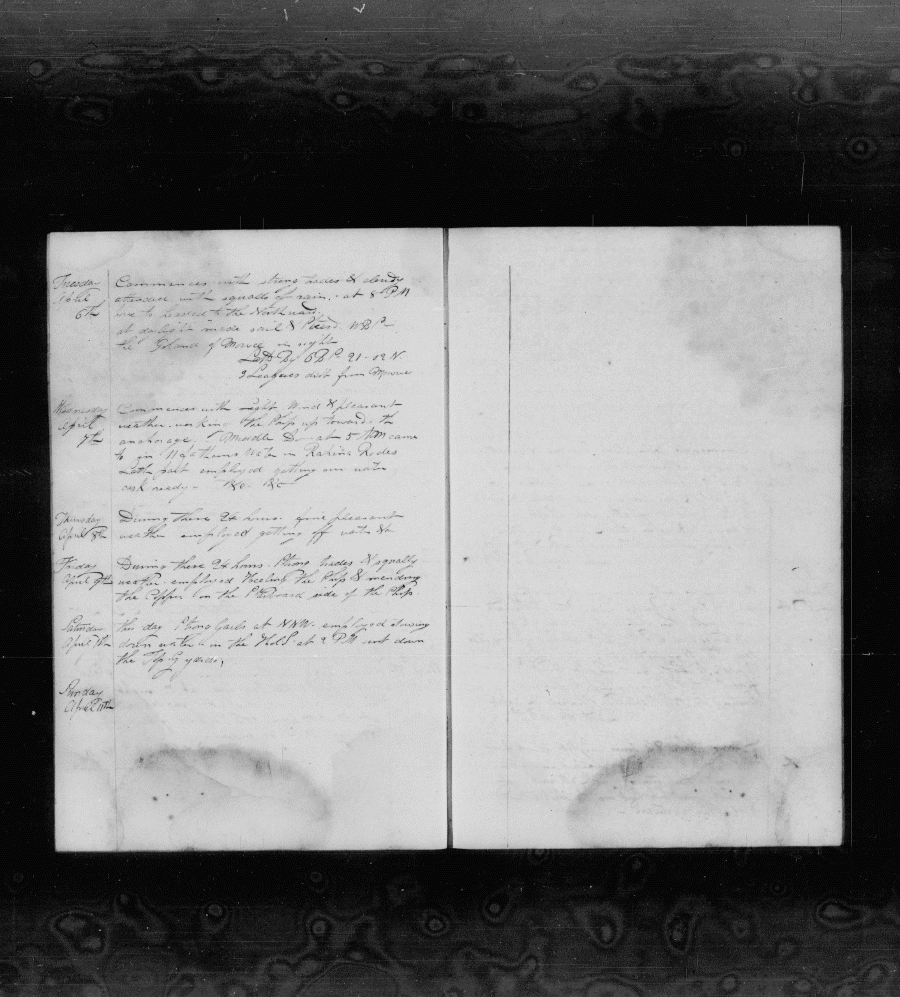 Tuesday Commences with strong trades & cloudy
April attended with squalls of rain. at 8 PM
6th hove to headed to the Northward.
at daylight made sail &
the Island of Mowee in sight
Latt By 21-12 N.
3 Leagues dist from Mowee
Wednesday Commences with Light Wind & pleasant
April weather. working the Ship up towards the
7th anchorage. Middle Do at 5 AM came
to in 11 fathoms water in Rahina Rodes
Latth part employed getting our water
cask ready - &c. &c
Thursday During these 24 hours. fine pleasant
April 8th weather employed getting off water &c
Friday During these 24 hours. Strong trades & squally
April 9th weather. employed heeling the Ship & mending
the Copper on the Starboard side of the Ship.
Saturday this day Strong Gails at NNW. employed stowing
April 10th down water in the Hol at 2 PM sent down
the yards,
Sunday
April 11th